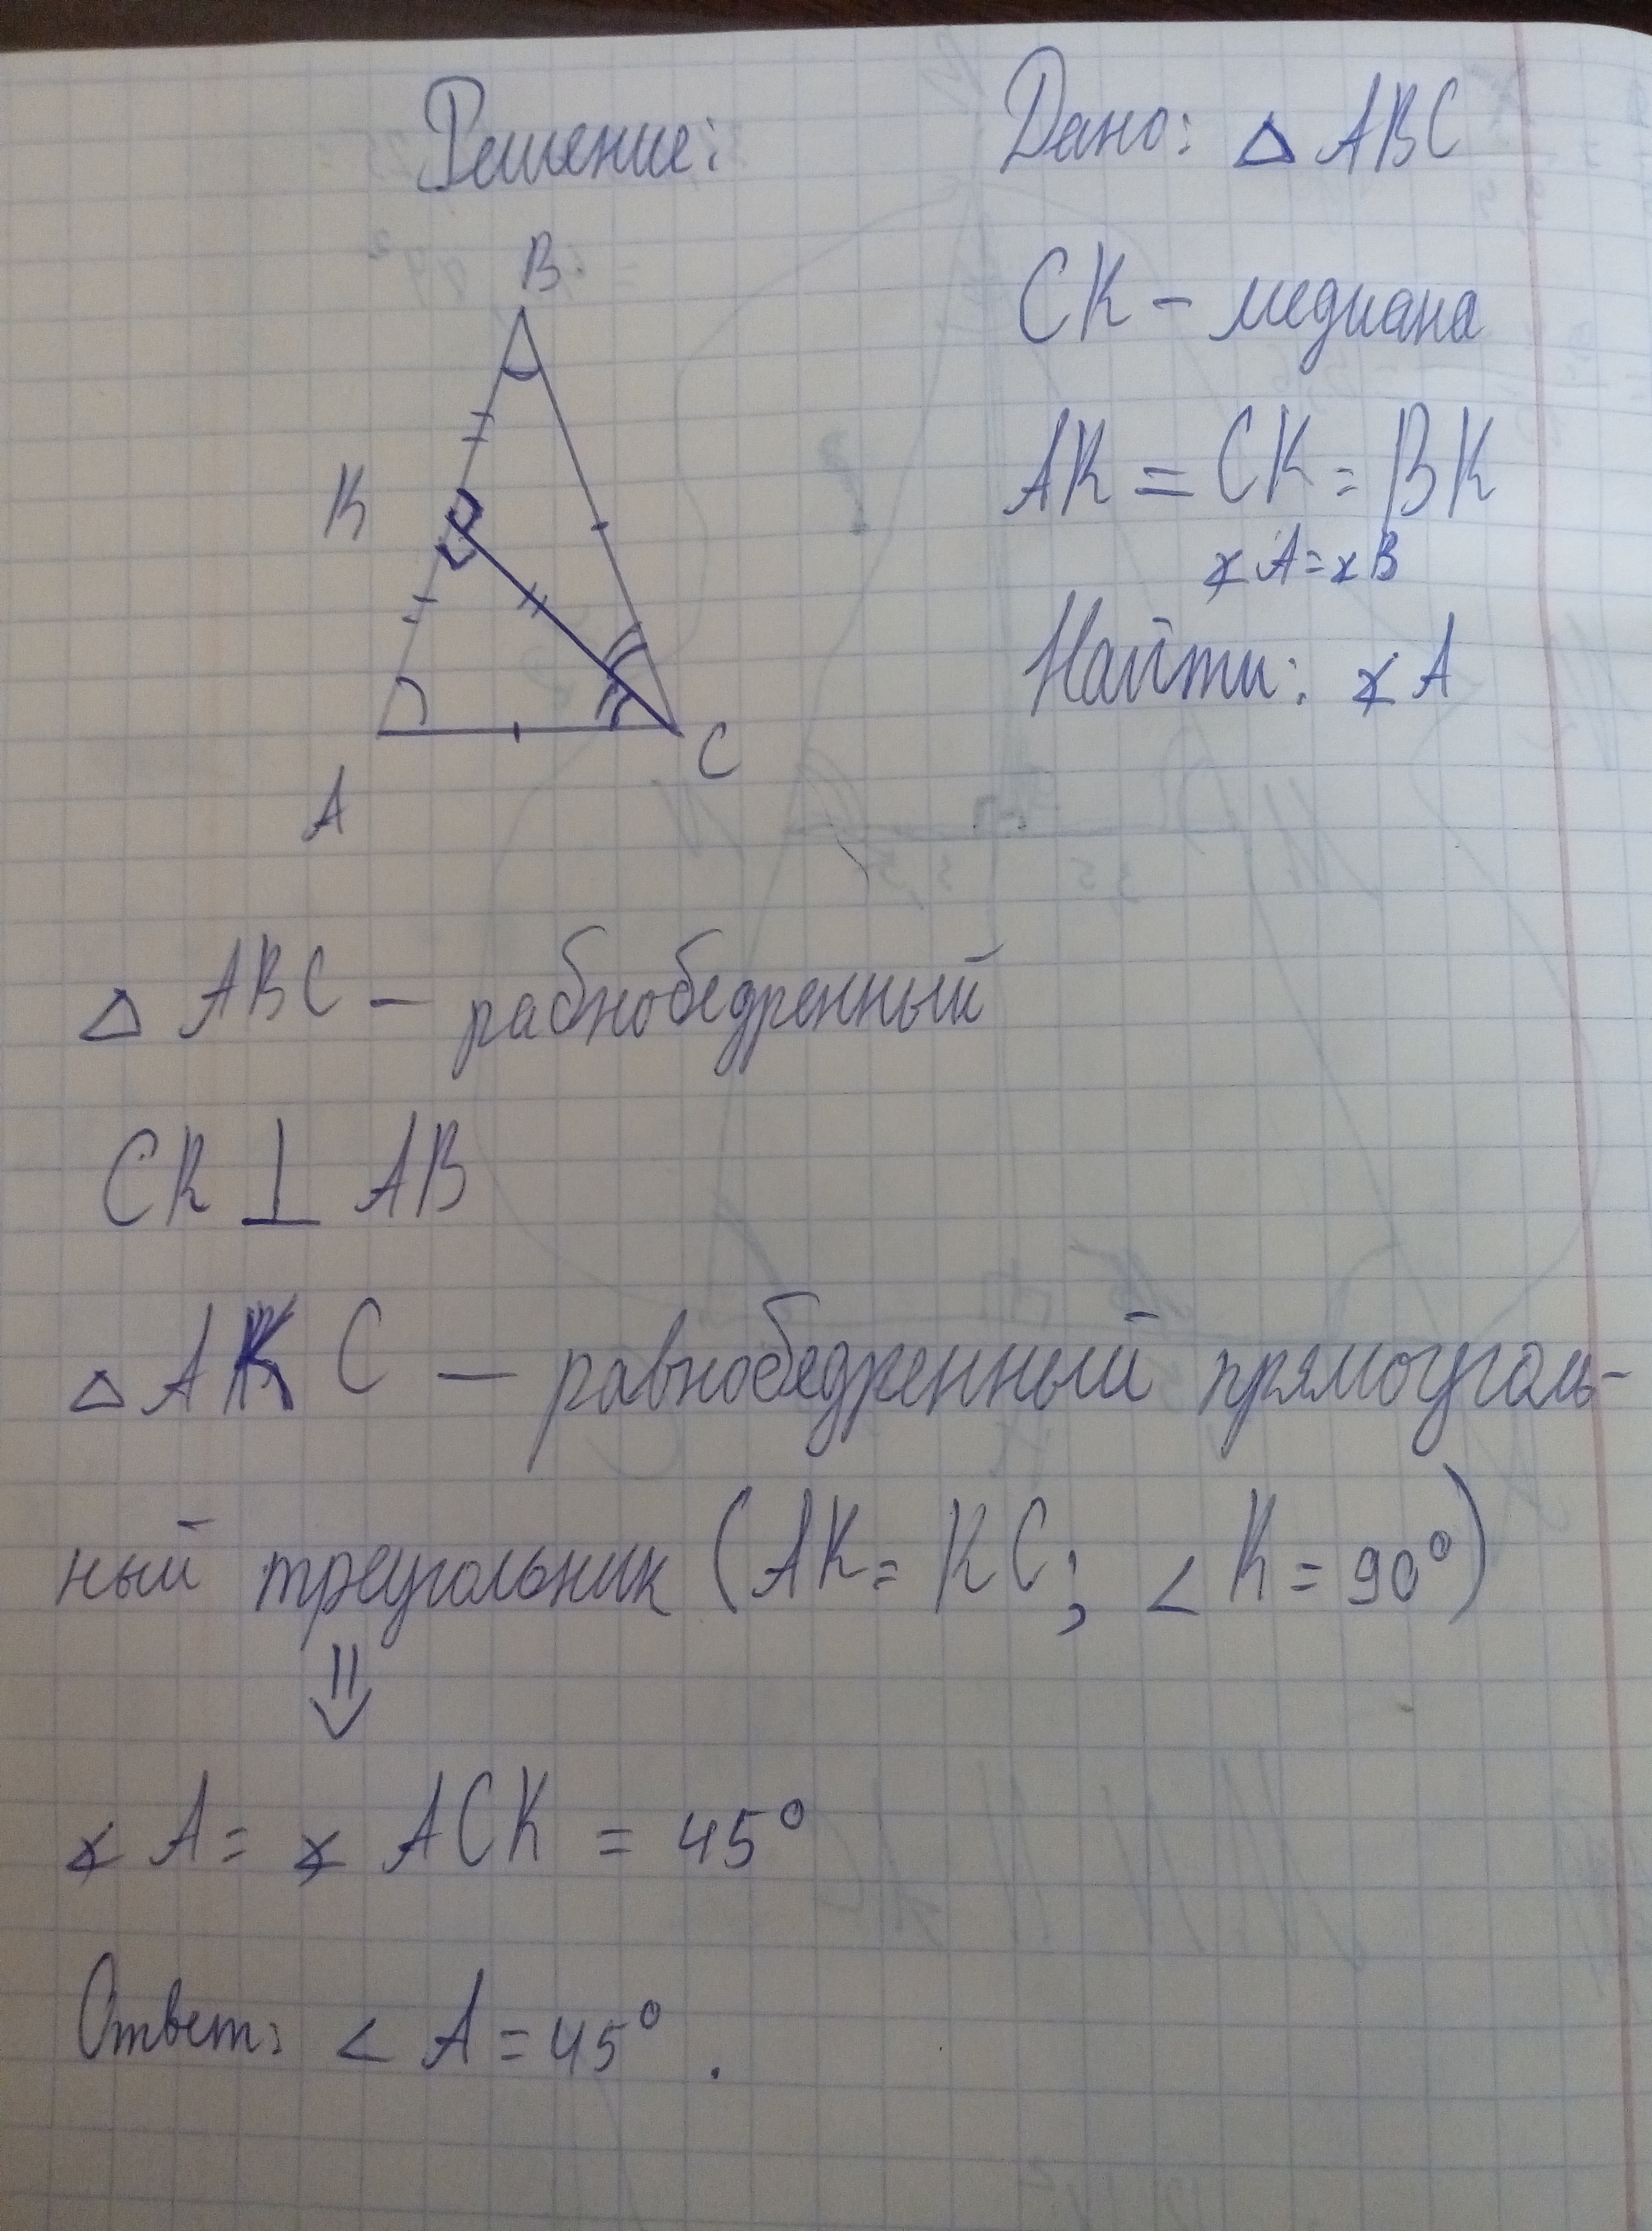 Решение:
Дано: △ ABC
CK - медиана
AK = CK = BK
∡ A = ∡ B
Найти: ∡ A
B
K
A
C
△ ABC – равнобедренный
CK ⊥ AB
△ AKC — равнобедренный прямоуголь-
ный треугольник (AK = KC; ∠ K = 90°)
⇓
∡ A = ∡ ACK = 45°
Ответ: ∠ A = 45°.